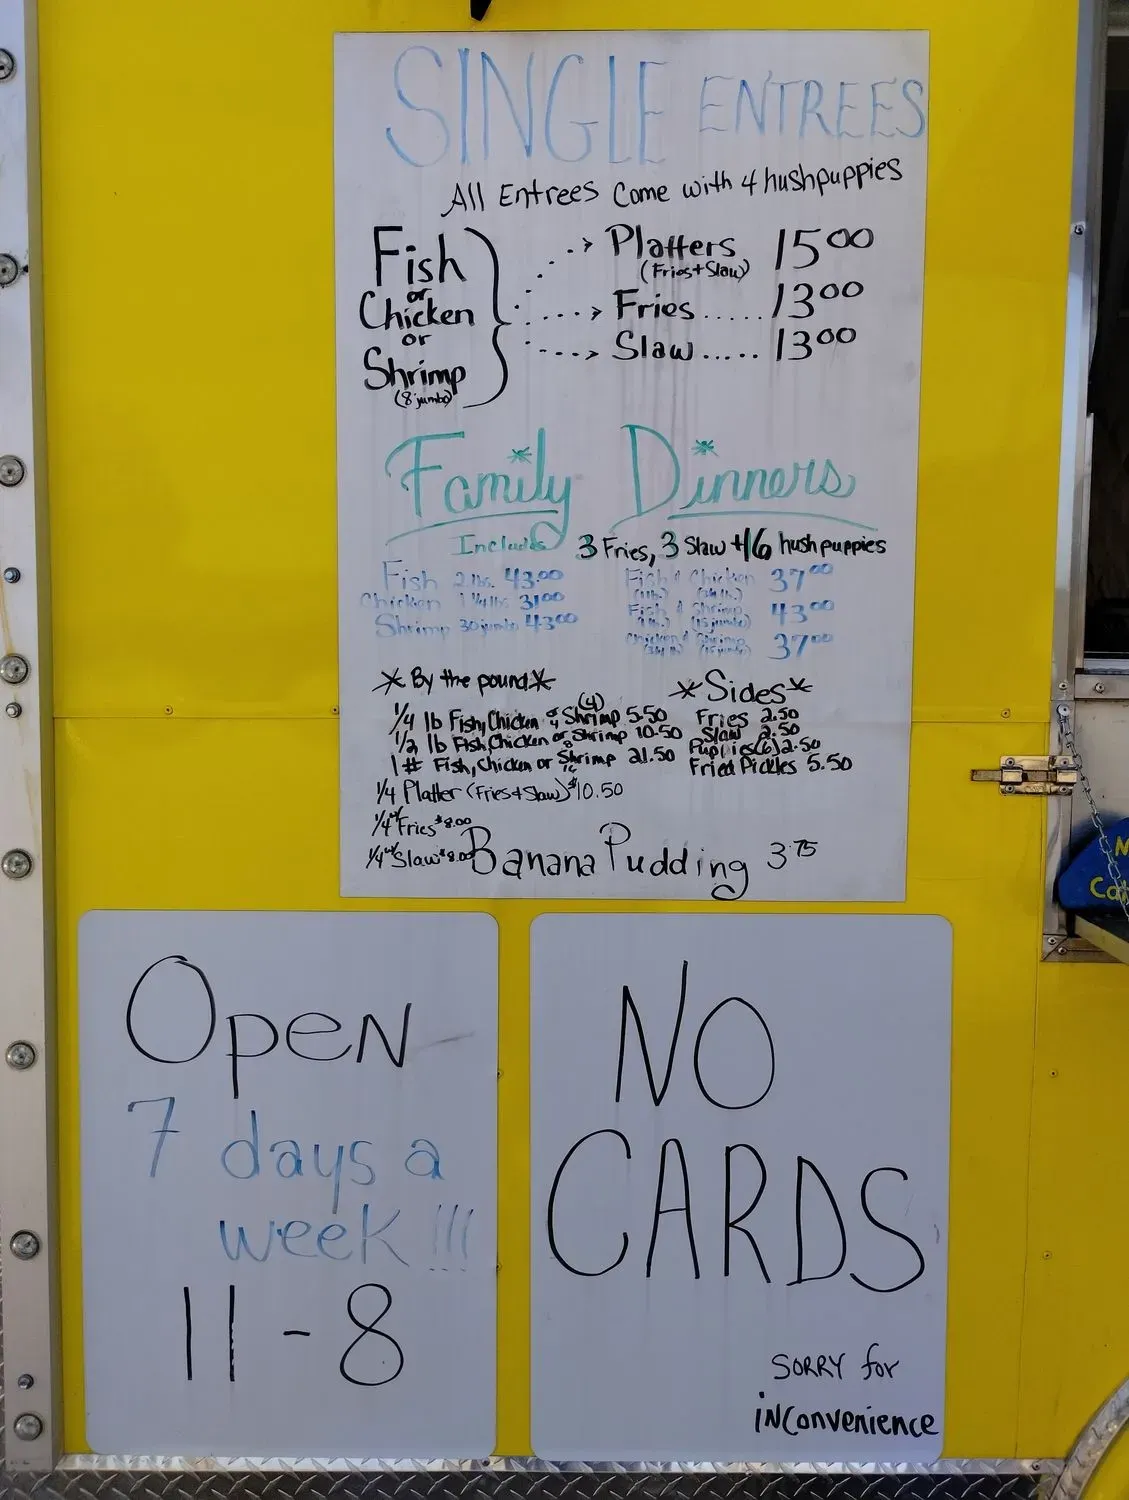 SINGLE ENTREES
All Entrees Come with 4 hushpuppies
Fish
or
Chicken
or
Shrimp
(8 jumbo)
Platters 15.00
(Fries+Slaw)
Fries..... 13.00
Slaw..... 13.00
Family Dinners
Includes 3 Fries, 3 Slaw + 16 hushpuppies
Fish 2 lbs. 43.00
Chicken 1 1/4 lbs 31.00
Shrimp 30 jumbo 43.00
Fish & Chicken 37.00
(1 lb.) (3/4 lb.)
Fish & Shrimp 43.00
(1 lb.) (15 jumbo)
Chicken & Shrimp 37.00
(3/4 lb) (15 jumbo)
*By the pound*
1/4 lb Fish, Chicken or Shrimp (4) 5.50
1/2 lb Fish, Chicken or Shrimp 8 10.50
1# Fish, Chicken or Shrimp 16 21.50
1/4 Platter (Fries+Slaw) $10.50
1/4 w/ Fries $8.00
1/4 w/ Slaw $8.00
*Sides*
Fries 2.50
Slaw 2.50
Puppies (6) 2.50
Fried Pickles 5.50
Banana Pudding 3.75
Open
7 days a
week!!!
11-8
NO
CARDS
SORRY for
inconvenience